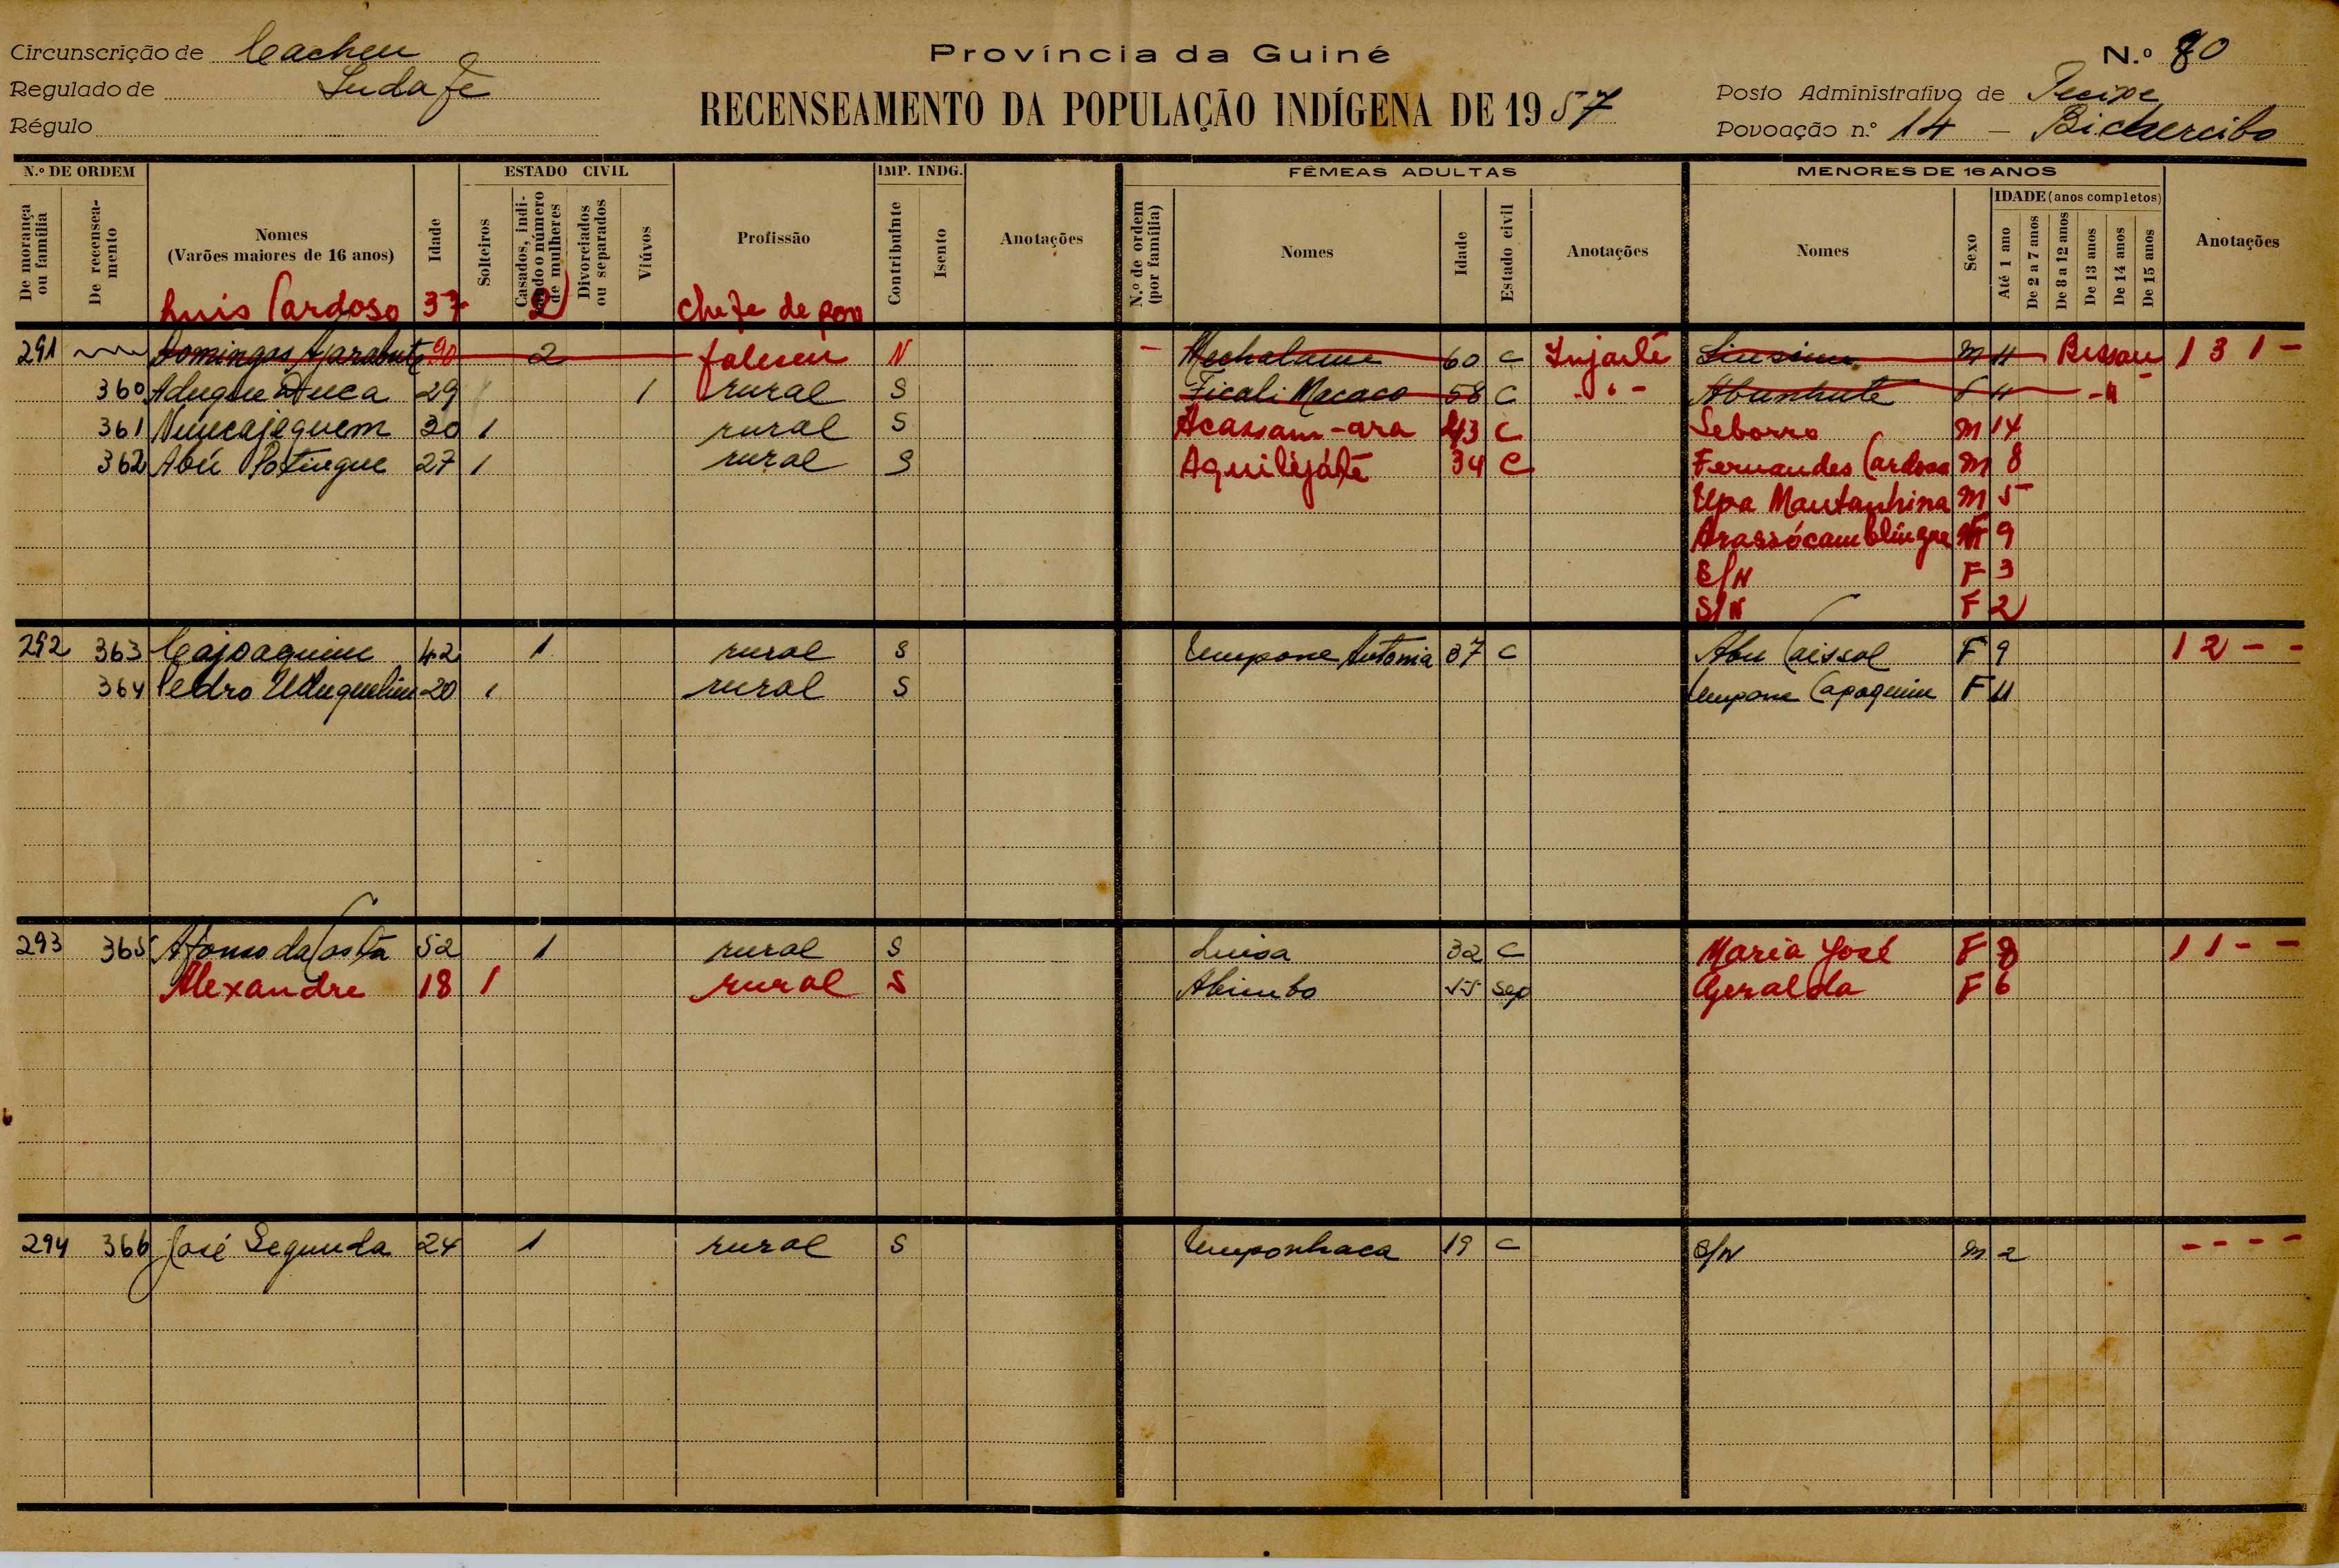 Circunscrição de Cacheu
Província da Guiné
N.º 80
Regulado de
RECENSEAMENTO DA POPULAÇÃO INDÍGENA DE 1957
Posto Administrativo de Pecixe
Régulo
Povoação n.º 14 –
N.º DE ORDEM
ESTADO CIVIL
IMP. INDG.
FÊMEAS ADULTAS
MENORES DE 16 ANOS
De morança ou família
De recensea-mento
Nomes
(Varões maiores de 16 anos)
Idade
Solteiros
Casados, indi-cando o número de mulheres
Divorciados ou separados
Viúvos
Profissão
Contribuinte
Isento
Anotações
N.º de ordem (por família)
Nomes
Idade
Estado civil
Anotações
Nomes
Sexo
IDADE (anos completos)
Até 1 ano
De 2 a 7 anos
De 8 a 12 anos
De 13 anos
De 14 anos
De 15 anos
Anotações
Luis Cardoso 37 2 chefe de pov
291 Domingos 90 2 faleceu N – 60 C M 4 Bissau 1 3 1 –
360 29 1 rural S Ficali Macaco 58 C F 4
361 30 1 rural S Acassam-ara 43 C Leborro M 14
362 Abú 27 1 rural S Aquilijáté 34 C Fernandes Cardoso M 8
Upa Mantanhina M 5
9
S/N F 3
S/N F 2
292 363 Cajoaquim 42 1 rural S Umpone Antonia 37 C Abu Caissal F 9 1 2 – –
364 Pedro 20 1 rural S Umpone F
293 365 Afonso da Costa 52 1 rural S Luisa 32 C Maria José F 8 1 1 – –
Alexandre 18 1 rural S Abimbo 55 sep Geralda F 6
294 366 José Segunda 24 1 rural S Umponhaca 19 C S/N M 2 – – – –